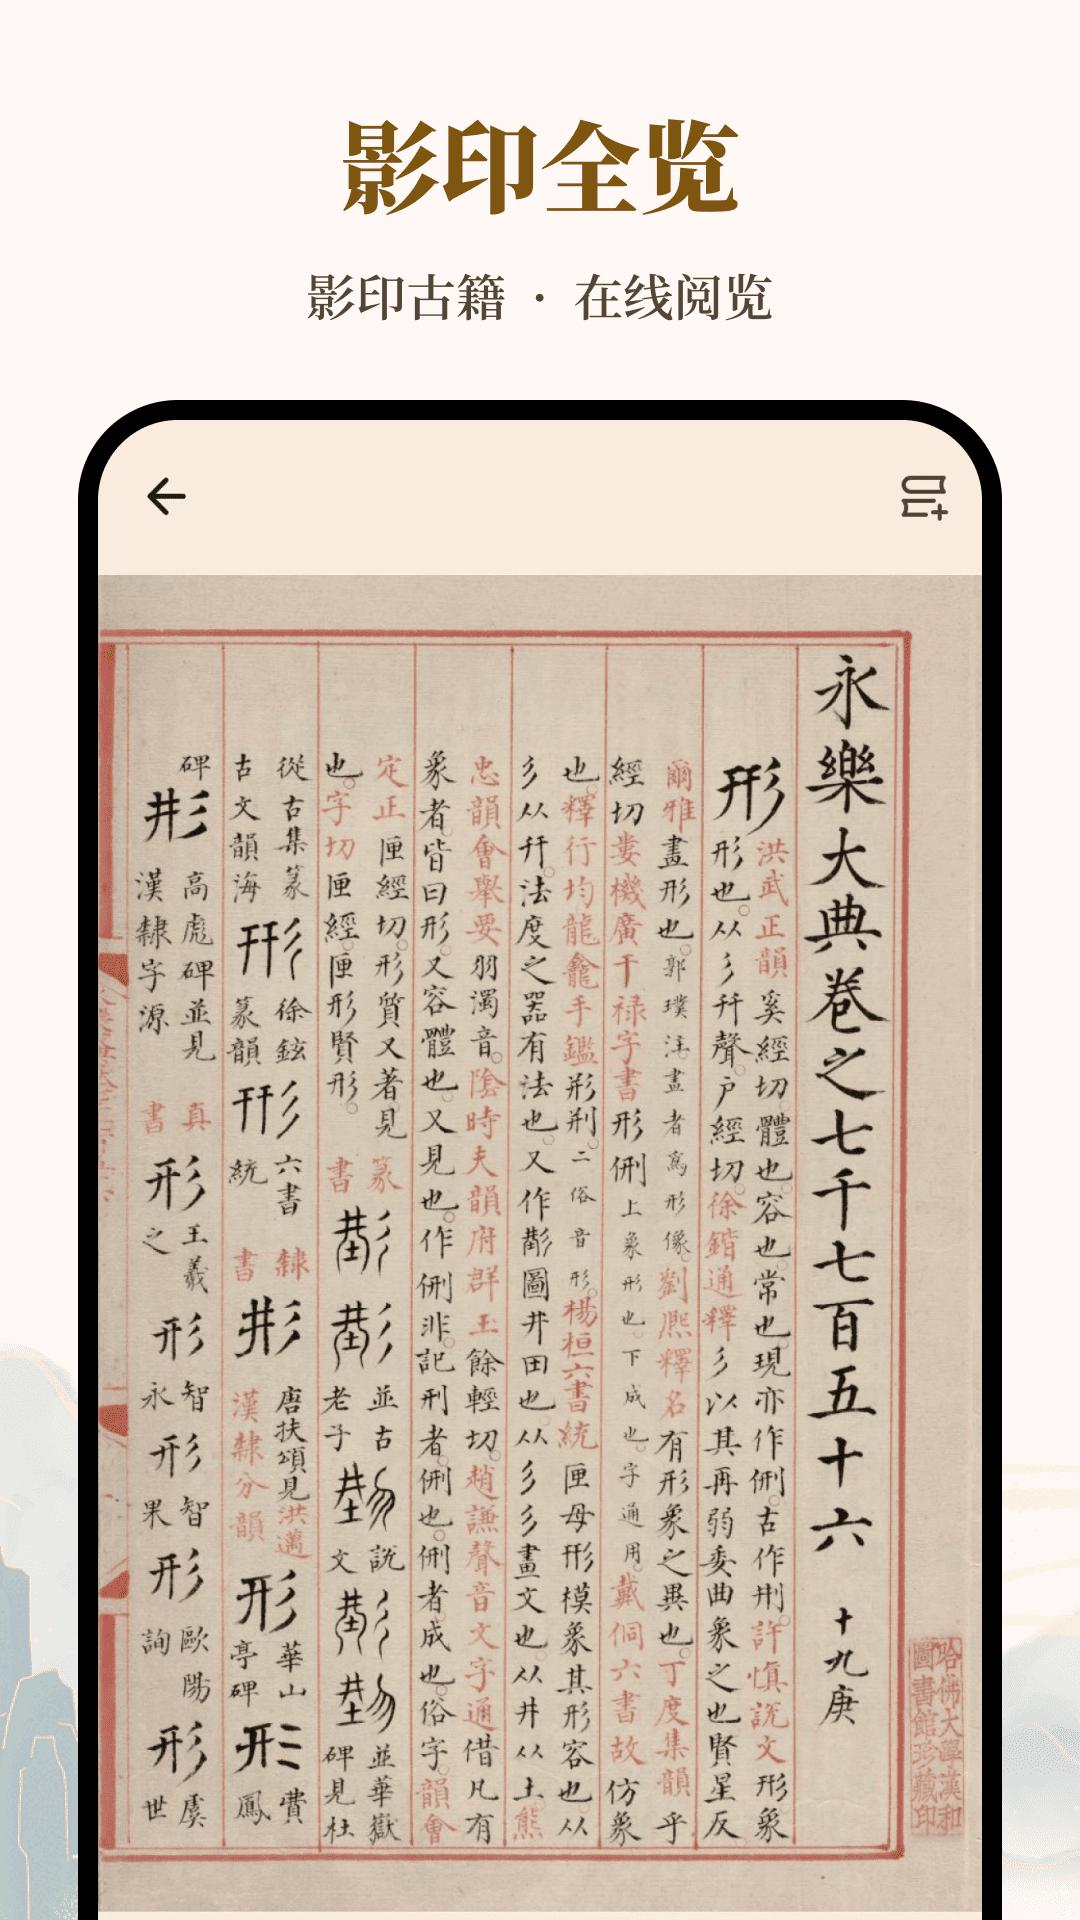 影印全览
影印古籍 · 在线阅览
永樂大典卷之七千七百五十六 十九庚
形
洪武正韻奚經切體也容也常也現亦作侀古作㓝許慎說文形象
形也从彡幵聲戶經切徐鍇通釋彡以其再弱委曲象之也賢星反
爾雅畫形也郭璞注畫者為形像劉熙釋名有形象之異也丁度集韻乎
經切婁機廣干祿字書形侀上象形也下成也字通用戴侗六書故仿象
也釋行均龍龕手鑑形㓝二俗音形楊桓六書統匣母形模象其形容也从
彡从幵法度之器有法也又作圖井田也从彡彡畫文也从井从土熊
忠韻會舉要羽濁音陰時夫韻府群玉餘輕切趙謙聲音文字通借凡有
象者皆曰形又容體也又見也作侀非記刑者侀也侀者成也俗字韻會
定正匣經切形質又著見
也字切匣經匣形賢形
篆書
並古老子
說文
並華嶽碑見杜
從古集篆古文韻海
形
徐鉉篆韻
形
六書統
隸書
形
唐扶頌見洪邁漢隸分韻
形
華山亭碑
形
費鳳
碑
形
高彪碑並見漢隸字源
真書
形
王羲之
形
智永
形
智果
形
歐陽詢
形
虞世
哈佛大學漢和圖書館珍藏印